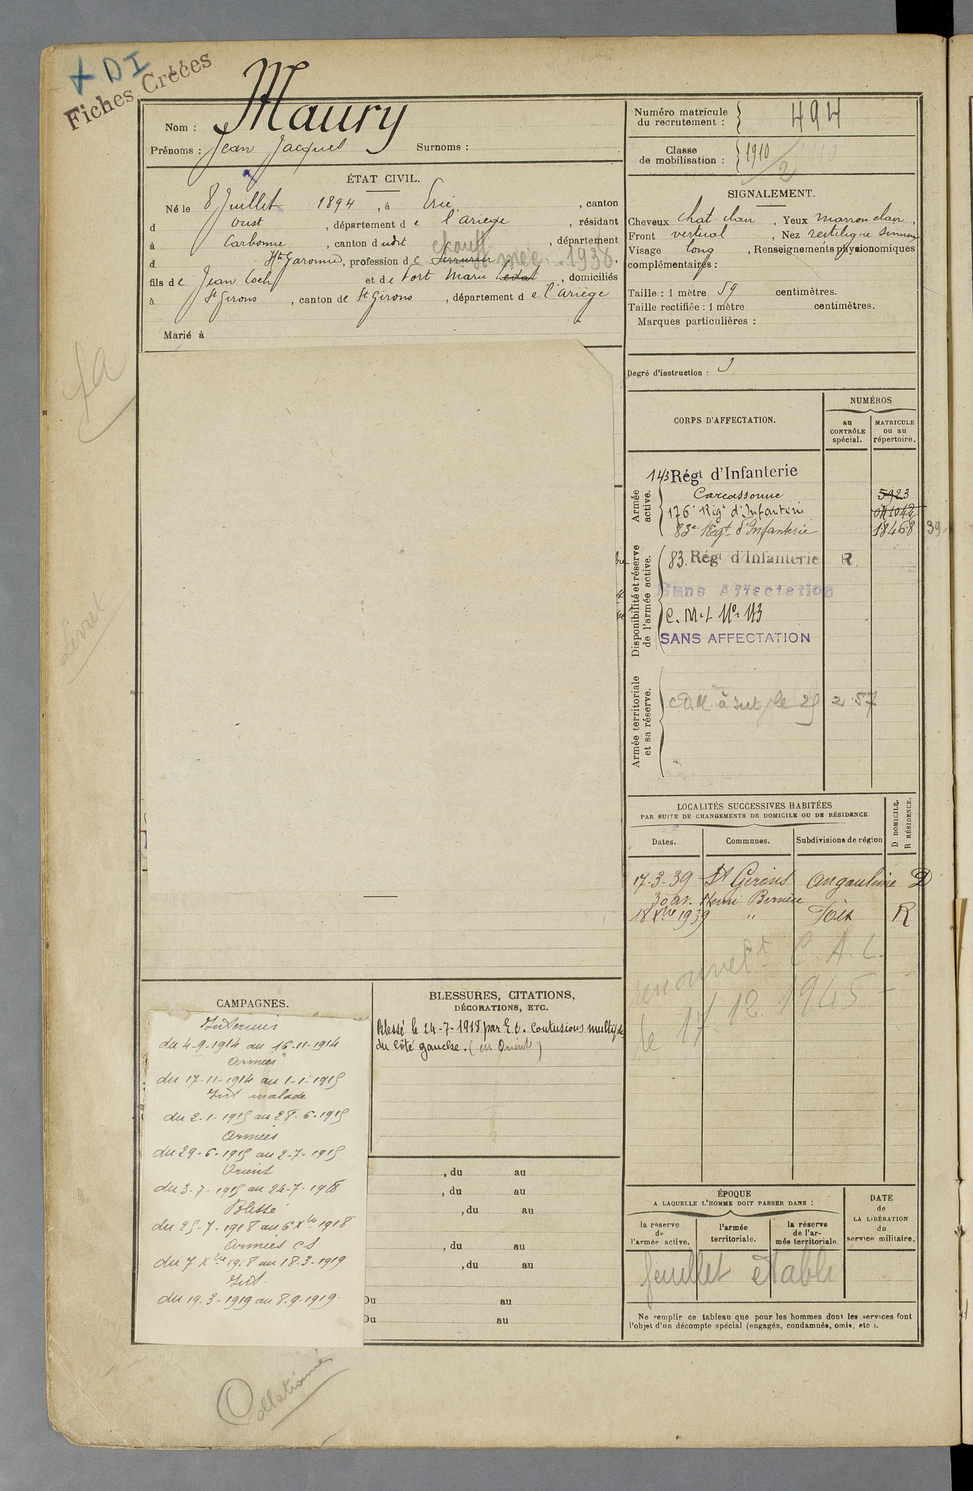 + DI
Fiches Créées
Nom : Maury
Prénoms : Jean Jacques Surnoms :
ÉTAT CIVIL.
Né le 8 Juillet 1894, à Ercé, canton
d Oust, département de l'Ariège, résidant
à Carbonne, canton dudit, département
d Hte Garonne, profession de Serrurier méc. 1938.
fils de Jean Coch et de Fort Marie, domiciliés
à St Girons, canton de St Girons, département de l'Ariège
Marié à
Numéro matricule
du recrutement : 494
Classe
de mobilisation : 1910
/2
SIGNALEMENT.
Cheveux chat. clair, Yeux marron clair,
Front vertical, Nez rectiligne sinueux
Visage long, Renseignements physionomiques
complémentaires :
Taille : 1 mètre 59 centimètres.
Taille rectifiée : 1 mètre centimètres.
Marques particulières :
Degré d'instruction : 3
CORPS D'AFFECTATION.
NUMÉROS
au
CONTRÔLE
spécial.
MATRICULE
ou au
répertoire.
Armée
active.
143 Régt d'Infanterie
Carcassonne 5923
176e Régt d'Infanterie
83e Régt d'Infanterie 18468 39
Disponibilité et réserve
de l'armée active.
83. Régt d'Infanterie R
Sans Affectation
C. M. I. No 113
SANS AFFECTATION
Armée territoriale
et sa réserve.
2.57
LOCALITÉS SUCCESSIVES HABITÉES
PAR SUITE DE CHANGEMENTS DE DOMICILE OU DE RÉSIDENCE
Dates.
Communes.
Subdivisions de région
D DOMICILE.
R RÉSIDENCE.
17-3-39 St Girons D
30 av. Henri Bernère
18 Xbre 1939 " Foix R
C. A. C.
le 17.12.1945
CAMPAGNES.
Intérieur
du 4-9-1914 au 16-11-1914
Armées
du 17-11-1914 au 1-1-1915
Int malade
du 2-1-1915 au 28-6-1915
Armées
du 29-6-1915 au 2-7-1915
Orient
du 3-7-1915 au 24-7-1918
Blessé
du 25-7-1918 au 6 Xbre 1918
Armées CS
du 7 Xbre 1918 au 18-3-1919
Int.
du 19-3-1919 au 8-9-1919
BLESSURES, CITATIONS,
DÉCORATIONS, ETC.
Blessé le 24-7-1918 par E.O. Contusions multiples
du côté gauche. (en Orient)
, du au
, du au
, du au
, du au
, du au
Du au
Du au
ÉPOQUE
A LAQUELLE L'HOMME DOIT PASSER DANS :
la réserve
de
l'armée active.
l'armée
territoriale.
la réserve
de l'ar-
mée territoriale.
DATE
de
LA LIBÉRATION
du
service militaire.
feuillet établi
Ne remplir ce tableau que pour les hommes dont les services font
l'objet d'un décompte spécial (engagés, condamnés, omis, etc.).
Livret
Collationné